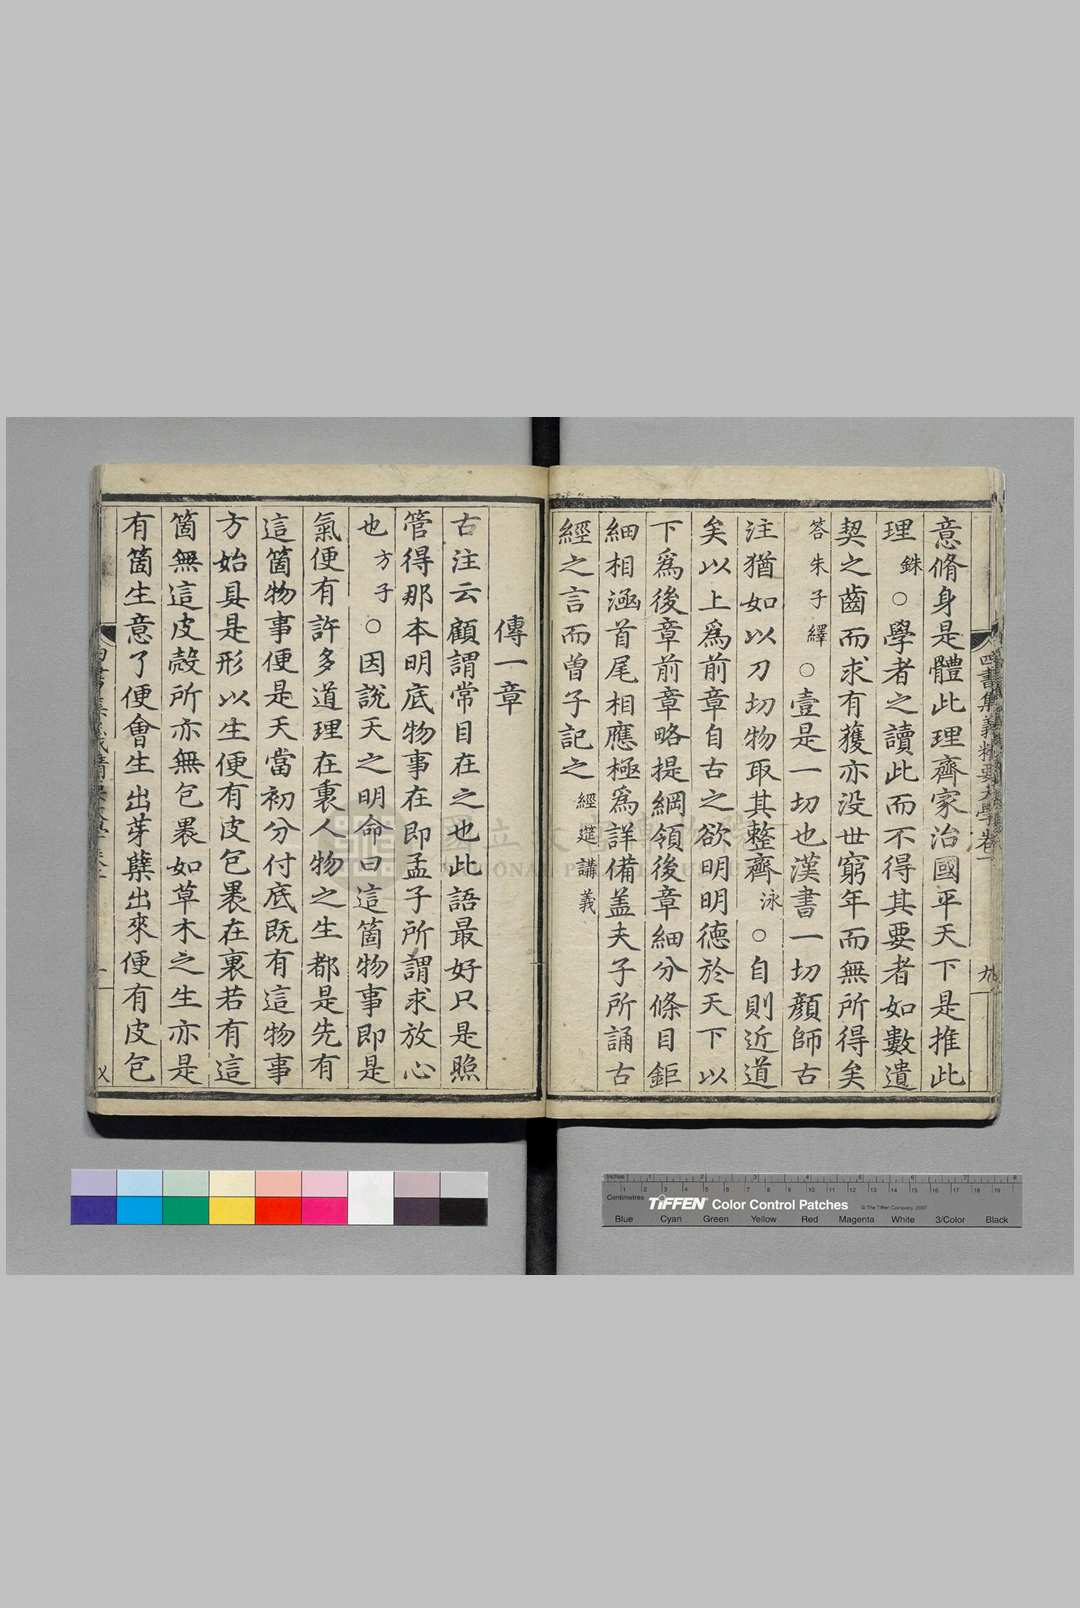 意脩身是體此理齊家治國平天下是推此
理銖○學者之讀此而不得其要者如數遺
契之齒而求有獲亦没世窮年而無所得矣
答朱子繹○壹是一切也漢書一切顔師古
注猶如以刀切物取其整齊泳○自則近道
矣以上爲前章自古之欲明明德於天下以
下爲後章前章略提綱領後章細分條目鉅
細相涵首尾相應極爲詳備盖夫子所誦古
經之言而曾子記之經筵講義
四書集義精要大學卷一
九
傳一章
古注云顧謂常目在之也此語最好只是照
管得那本明底物事在即孟子所謂求放心
也方子○因說天之明命曰這箇物事即是
氣便有許多道理在裏人物之生都是先有
這箇物事便是天當初分付底既有這物事
方始具是形以生便有皮包裹在裏若有這
箇無這皮殼所亦無包裹如草木之生亦是
有箇生意了便會生出芽孽出來便有皮包
國立故宮博物院
NATIONAL PALACE MUSEUM
Inches
Centimetres
TIFFEN Color Control Patches
© The Tiffen Company, 2007
Blue Cyan Green Yellow Red Magenta White 3/Color Black